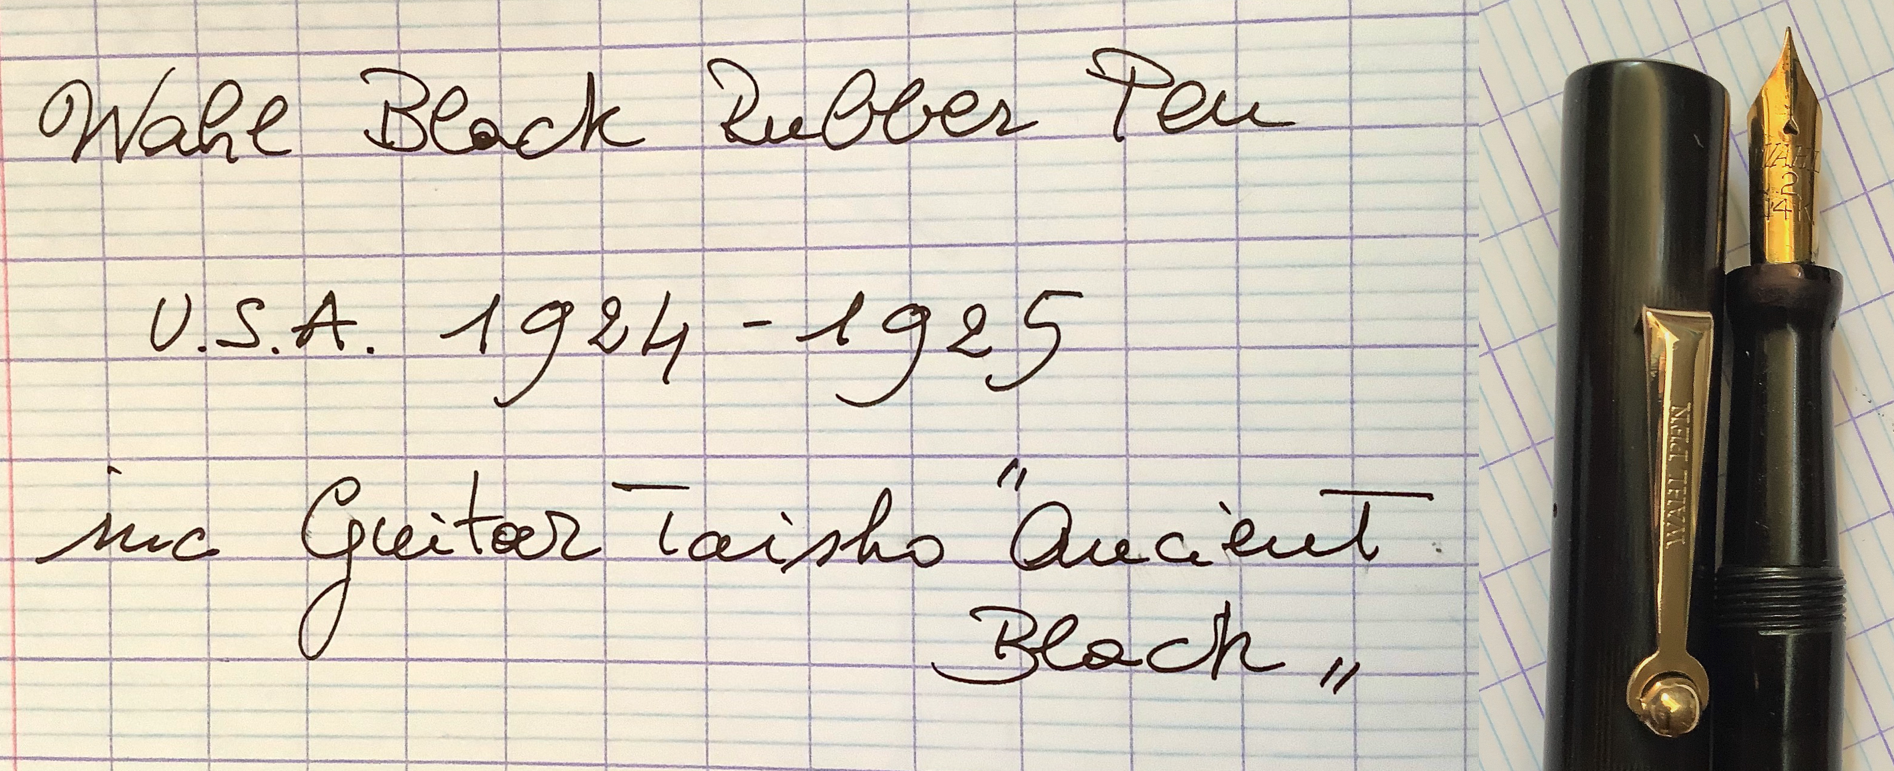 Wahl Black Rubber Pen
U.S.A. 1924-1925
inc Guitar Taisho "Ancient
Black „
WAHL PEN
WAHL
2
14K